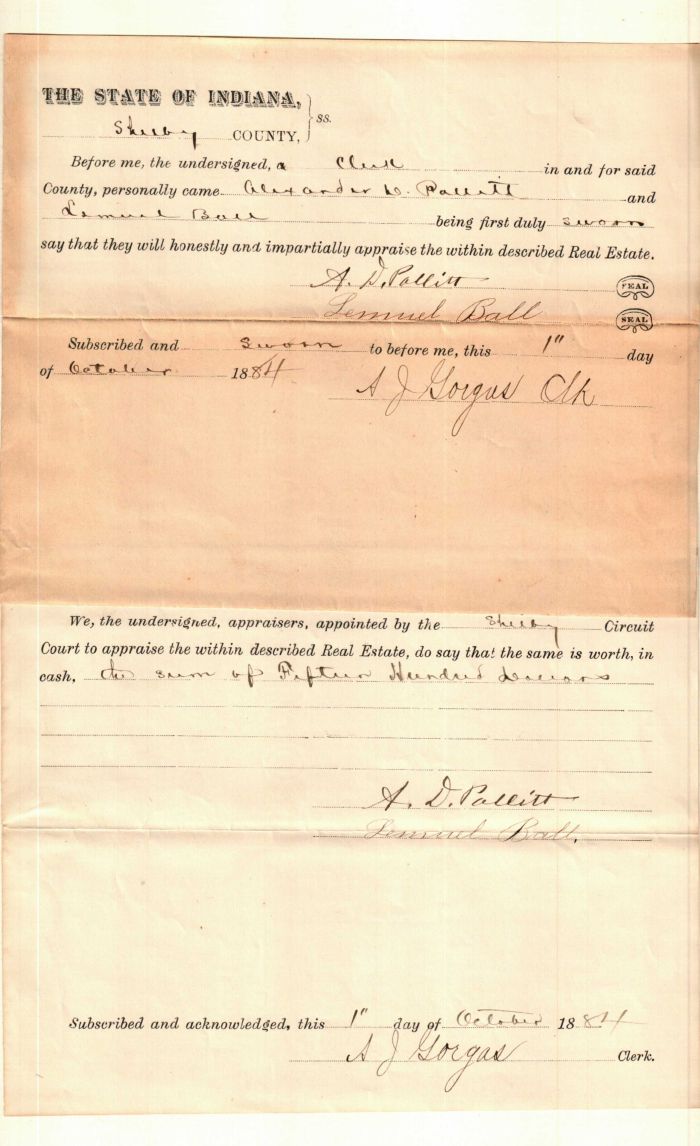 THE STATE OF INDIANA,
ss.
Shelby COUNTY,
Before me, the undersigned, a Clerk in and for said
County, personally came Alexander D. Pollitt and
Lemuel Ball being first duly sworn
say that they will honestly and impartially appraise the within described Real Estate.
A. D. Pollitt SEAL
Lemuel Ball SEAL
Subscribed and sworn to before me, this 1" day
of October 1884
A J Gorgas Clk
We, the undersigned, appraisers, appointed by the Shelby Circuit
Court to appraise the within described Real Estate, do say that the same is worth, in
cash, the sum of Fifteen Hundred Dollars
A. D. Pollitt
Lemuel Ball.
Subscribed and acknowledged, this 1" day of October 1884
A J Gorgas Clerk.